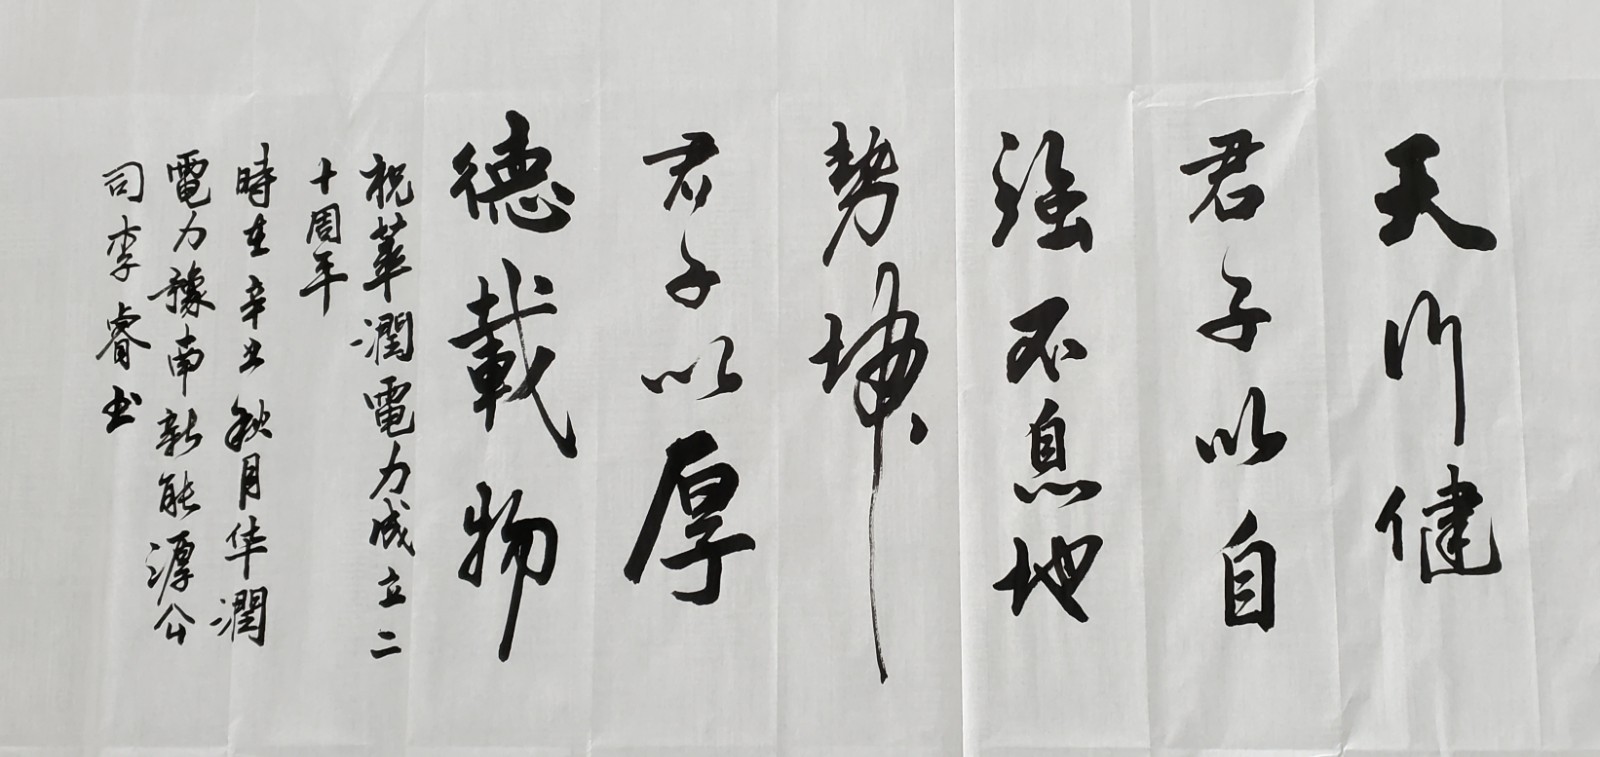 天行健
君子以自
強不息地
勢坤
君子以厚
德載物
祝華潤電力成立二
十周年
時在辛丑秋月华潤
電力豫南新能源公
司李睿书